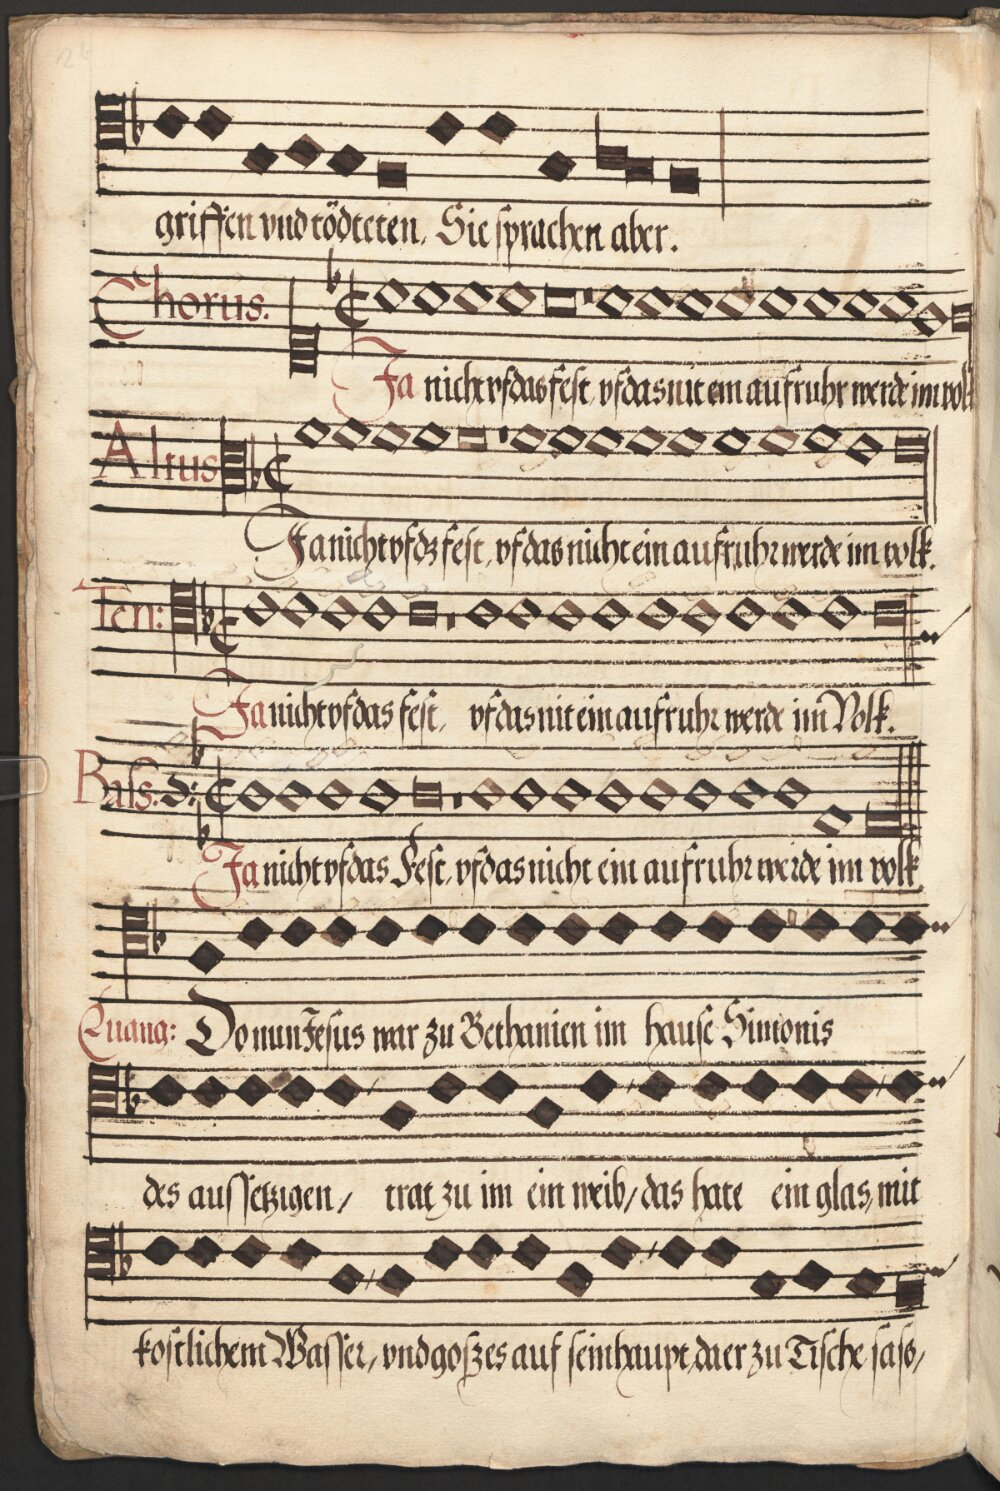 griffen vnd tödteten, Sie sprachen aber.
Chorus.
Ja nicht vf das fest, vf das nit ein aufruhr werde im volk
Altus
Ja nicht vf dz fest, vf das nicht ein aufruhr werde im volk.
Ten:
Ja nicht vf das fest, vf das nit ein aufruhr werde im Volk.
Bass:
Ja nicht vf das Fest, vf das nicht ein aufruhr werde im volk
Euang: Do nun Jesus war zu Bethanien im hause Simonis
des aussetzigen, trat zu im ein weib, das hate ein glas, mit
kostlichem Wasser, vnd gosz es auf sein haupt, da er zu Tische sass,